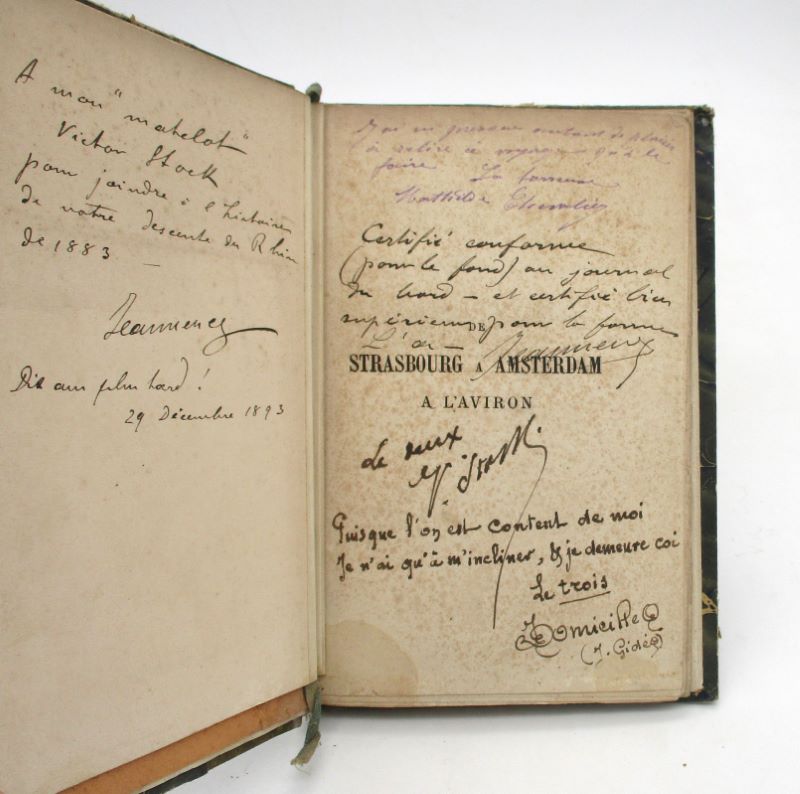 A mon "matelot"
Victor Stock
pour joindre à l'histoire
de notre descente du Rhin
de 1883 —
Dix ans plus tard !
29 Décembre 1893
J'ai eu presque autant de plaisir
à relire ce voyage qu'à le
faire
Mathilde
Certifié conforme
(pour le fond) au journal
du bord — et certifié bien
supérieur pour la forme
DE
STRASBOURG A AMSTERDAM
A L'AVIRON
Le deux
V. Stock
Puisque l'on est content de moi
Je n'ai qu'à m'incliner, & je demeure coi
Le trois